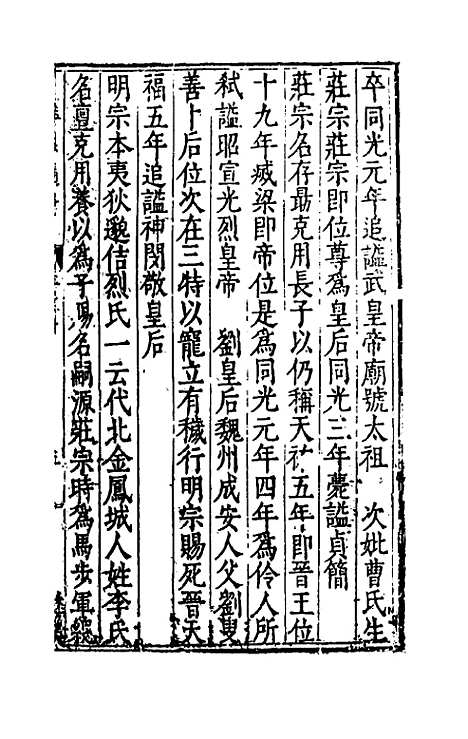 卒同光元年追謚武皇帝廟號太祖　次妣曹氏生
莊宗莊宗即位尊為皇后同光三年薨謚貞簡
莊宗名存勗克用長子以仍稱天祐五年即晉王位
十九年滅梁即帝位是為同光元年四年為伶人所
弒謚昭宣光烈皇帝　劉皇后魏州成安人父劉叟
善卜后位次在三特以寵立有穢行明宗賜死晉天
福五年追謚神閔敬皇后
明宗本夷狄邈佶烈氏一云代北金鳳城人姓李氏
名亶克用養以為子賜名嗣源莊宗時為馬步軍總